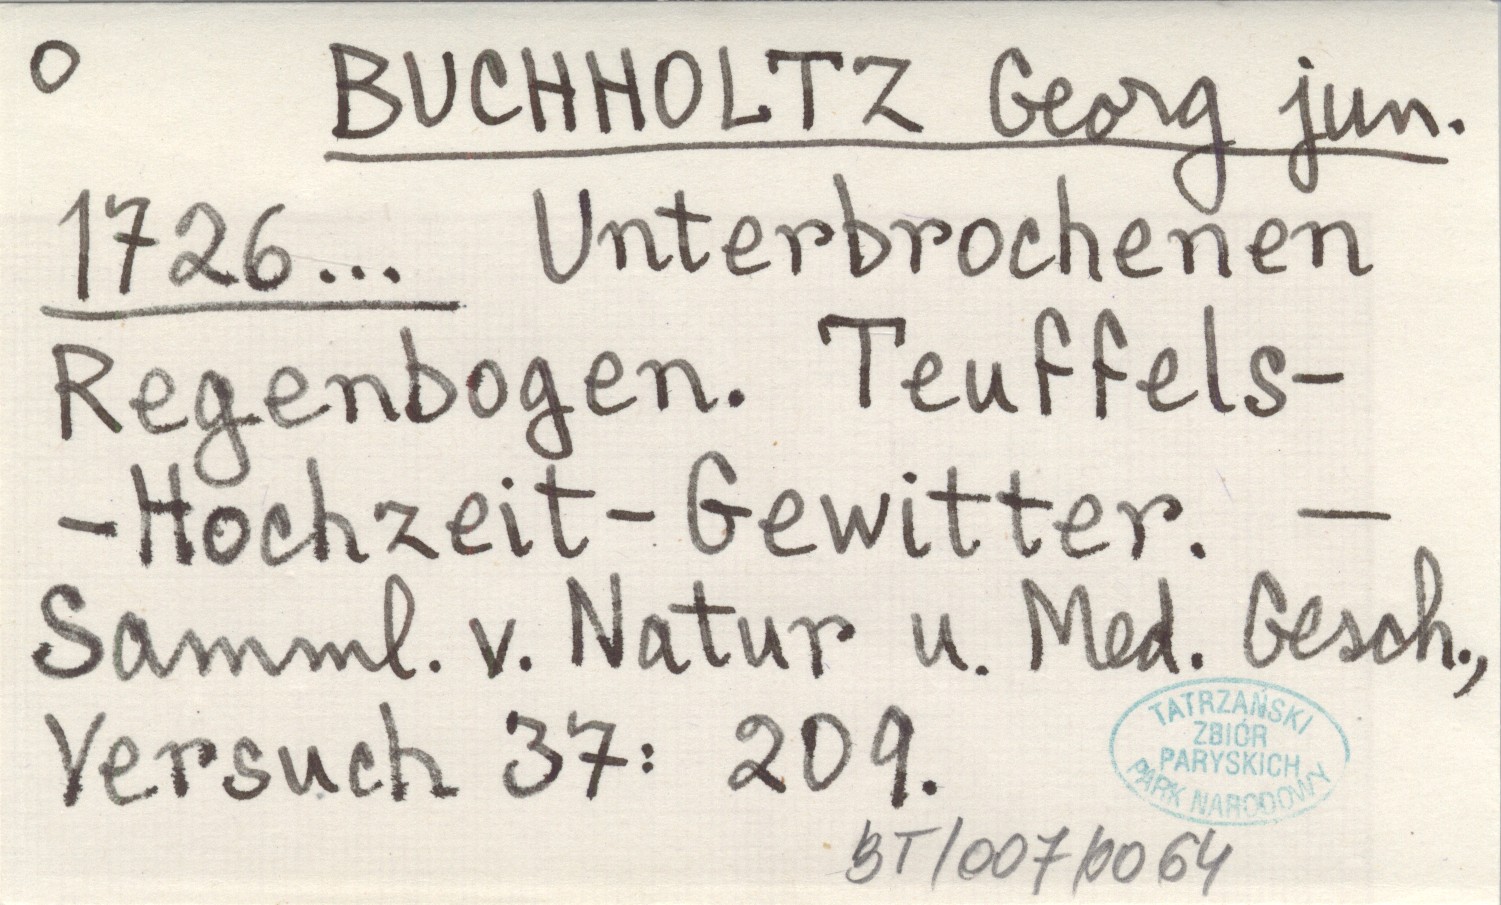 O BUCHHOLTZ Georg jun.
1726... Unterbrochenen
Regenbogen. Teuffels-
-Hochzeit-Gewitter. —
Samml. v. Natur u. Med. Gesch.,
Versuch 37: 209.
TATRZAŃSKI
ZBIÓR
PARYSKICH
PARK NARODOWY
BT/007/0064